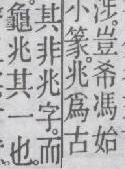 涉。豈希馮始
小篆。兆爲古
其非兆字。而
龜兆其一也。